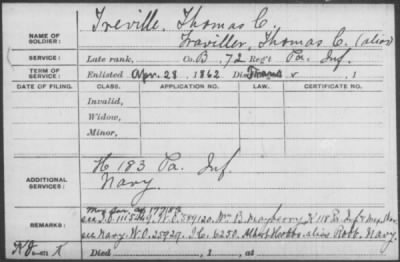 NAME OF SOLDIER: Treville, Thomas C.
Fraviller, Thomas C. (alias)
SERVICE: Late rank, Co. B, 72 Reg't Pa. Inf.
TERM OF SERVICE: Enlisted Apr. 28, 1862 Dis , 1
DATE OF FILING. CLASS. APPLICATION NO. LAW. CERTIFICATE NO.
Invalid,
Widow,
Minor,
ADDITIONAL SERVICES: H 183 Pa. Inf
Navy.
REMARKS: 
see I.O. W.O. 789120. Wm B. Mayberry, K 118 Pa. Inf &
see Navy. W.O. 25929. I.C. 6250. Albert Hobbs alias Robt. Navy.
Died , 1 , at